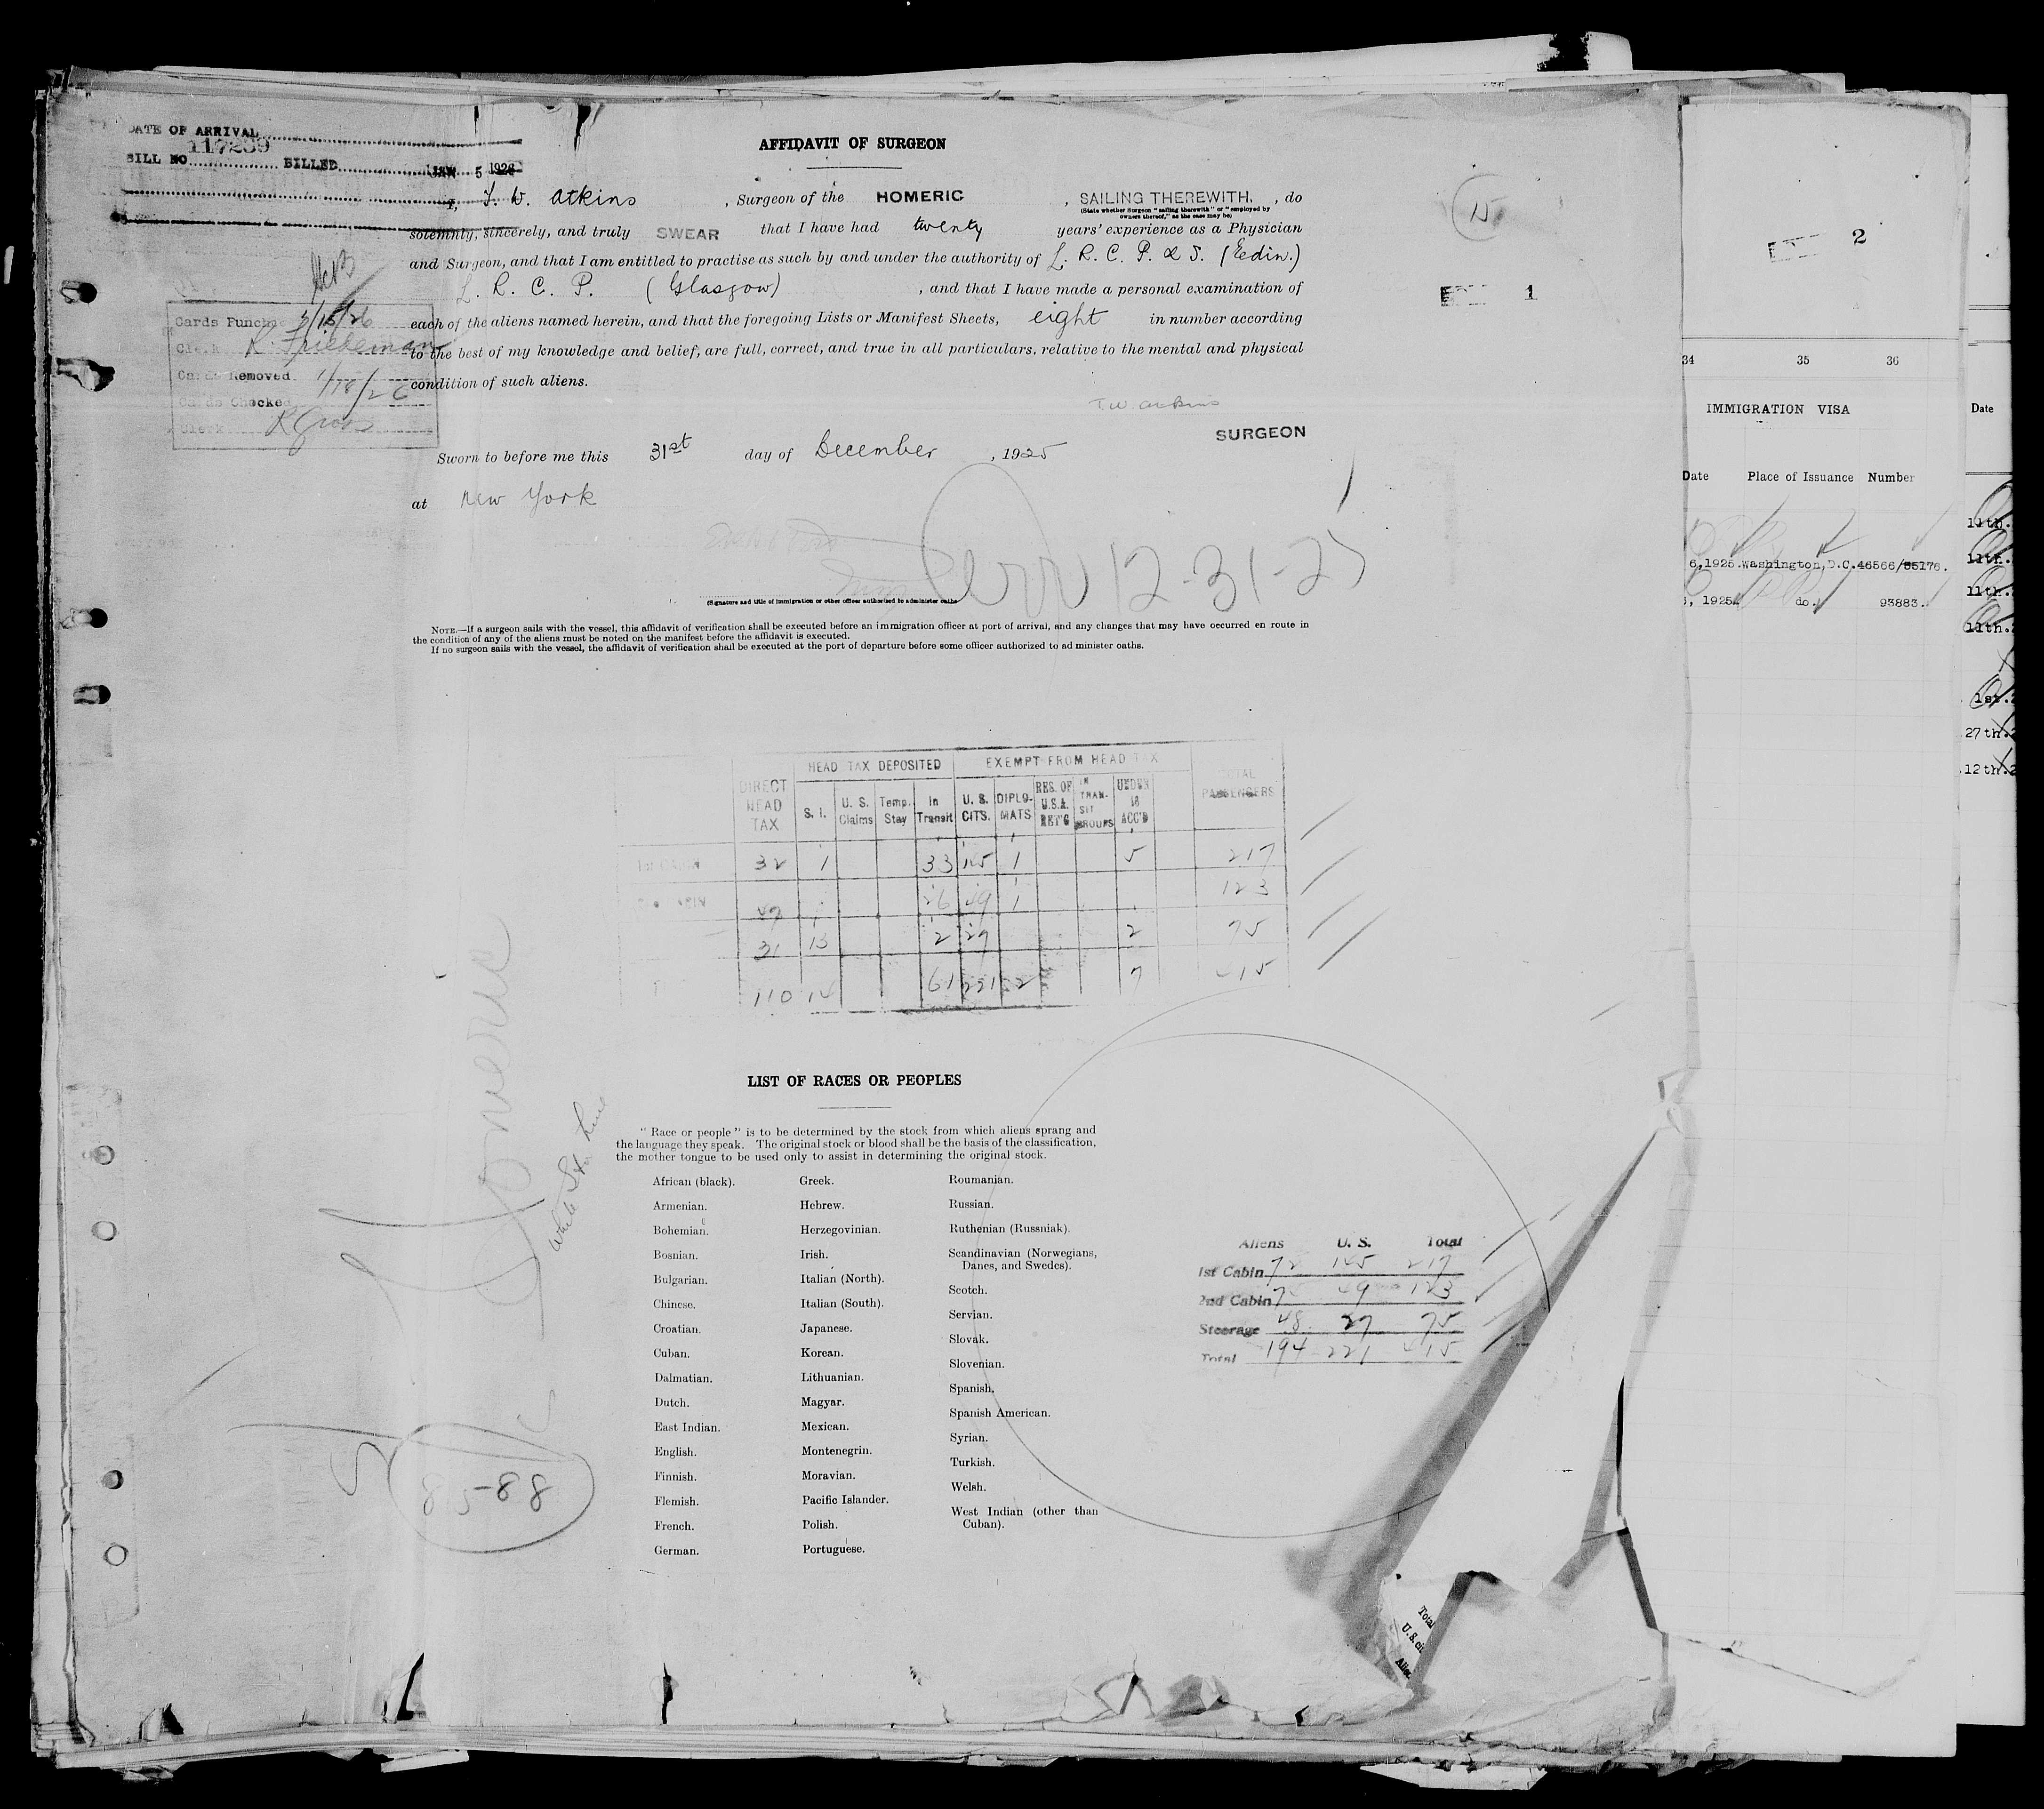 DATE OF ARRIVAL
117239
BILL NO. BILLED JAN 5 1926
AFFIDAVIT OF SURGEON
I, T. W. Atkins , Surgeon of the HOMERIC , SAILING THEREWITH, , do
(State whether Surgeon "sailing therewith" or "employed by
owners thereof," as the case may be)
solemnly, sincerely, and truly SWEAR that I have had twenty years' experience as a Physician
and Surgeon, and that I am entitled to practise as such by and under the authority of L. R. C. P. & S. (Edin.)
L. R. C. P. (Glasgow) , and that I have made a personal examination of
each of the aliens named herein, and that the foregoing Lists or Manifest Sheets, eight in number according
to the best of my knowledge and belief, are full, correct, and true in all particulars, relative to the mental and physical
condition of such aliens.
T. W. Atkins
SURGEON
Sworn to before me this 31st day of December , 1925
at New York
Arr 12-31-25
(Signature and title of immigration or other officer authorised to administer oaths
NOTE.—If a surgeon sails with the vessel, this affidavit of verification shall be executed before an immigration officer at port of arrival, and any changes that may have occurred en route in
the condition of any of the aliens must be noted on the manifest before the affidavit is executed.
If no surgeon sails with the vessel, the affidavit of verification shall be executed at the port of departure before some officer authorized to ad minister oaths.
15
1
Cards Punched 1/15/26
Clerk R. Friedeman
Cards Removed 1/18/26
Cards Checked
Clerk R Gross
HEAD TAX DEPOSITED EXEMPT FROM HEAD TAX
DIRECT HEAD TAX S. I. U. S. Claims Temp. Stay In Transit U. S. CITS. DIPLO-MATS RES. OF U.S.A. RET'G IN TRAN-SIT GROUPS UNDER 16 ACC'D TOTAL PASSENGERS
1st CABIN 32 1 33 145 1 5 217
47 26 49 1 123
31 13 2 27 2 75
110 14 61 221 2 7 415
Homeric
White Star Line
85-88
LIST OF RACES OR PEOPLES
"Race or people" is to be determined by the stock from which aliens sprang and
the language they speak. The original stock or blood shall be the basis of the classification,
the mother tongue to be used only to assist in determining the original stock.
African (black).
Armenian.
Bohemian.
Bosnian.
Bulgarian.
Chinese.
Croatian.
Cuban.
Dalmatian.
Dutch.
East Indian.
English.
Finnish.
Flemish.
French.
German.
Greek.
Hebrew.
Herzegovinian.
Irish.
Italian (North).
Italian (South).
Japanese.
Korean.
Lithuanian.
Magyar.
Mexican.
Montenegrin.
Moravian.
Pacific Islander.
Polish.
Portuguese.
Roumanian.
Russian.
Ruthenian (Russniak).
Scandinavian (Norwegians,
Danes, and Swedes).
Scotch.
Servian.
Slovak.
Slovenian.
Spanish.
Spanish American.
Syrian.
Turkish.
Welsh.
West Indian (other than
Cuban).
Aliens U. S. Total
1st Cabin 72 145 217
2nd Cabin 74 49 123
Steerage 48 27 75
Total 194 221 415
Total
U. S. cit.
Alien
2
34 35 36
IMMIGRATION VISA
Date Place of Issuance Number
6,1925. Washington,D.C. 46566/85176.
, 1925. do. 93883.
Date
11th.
11th.
11th.
11th.
1st.
27th.
12th.